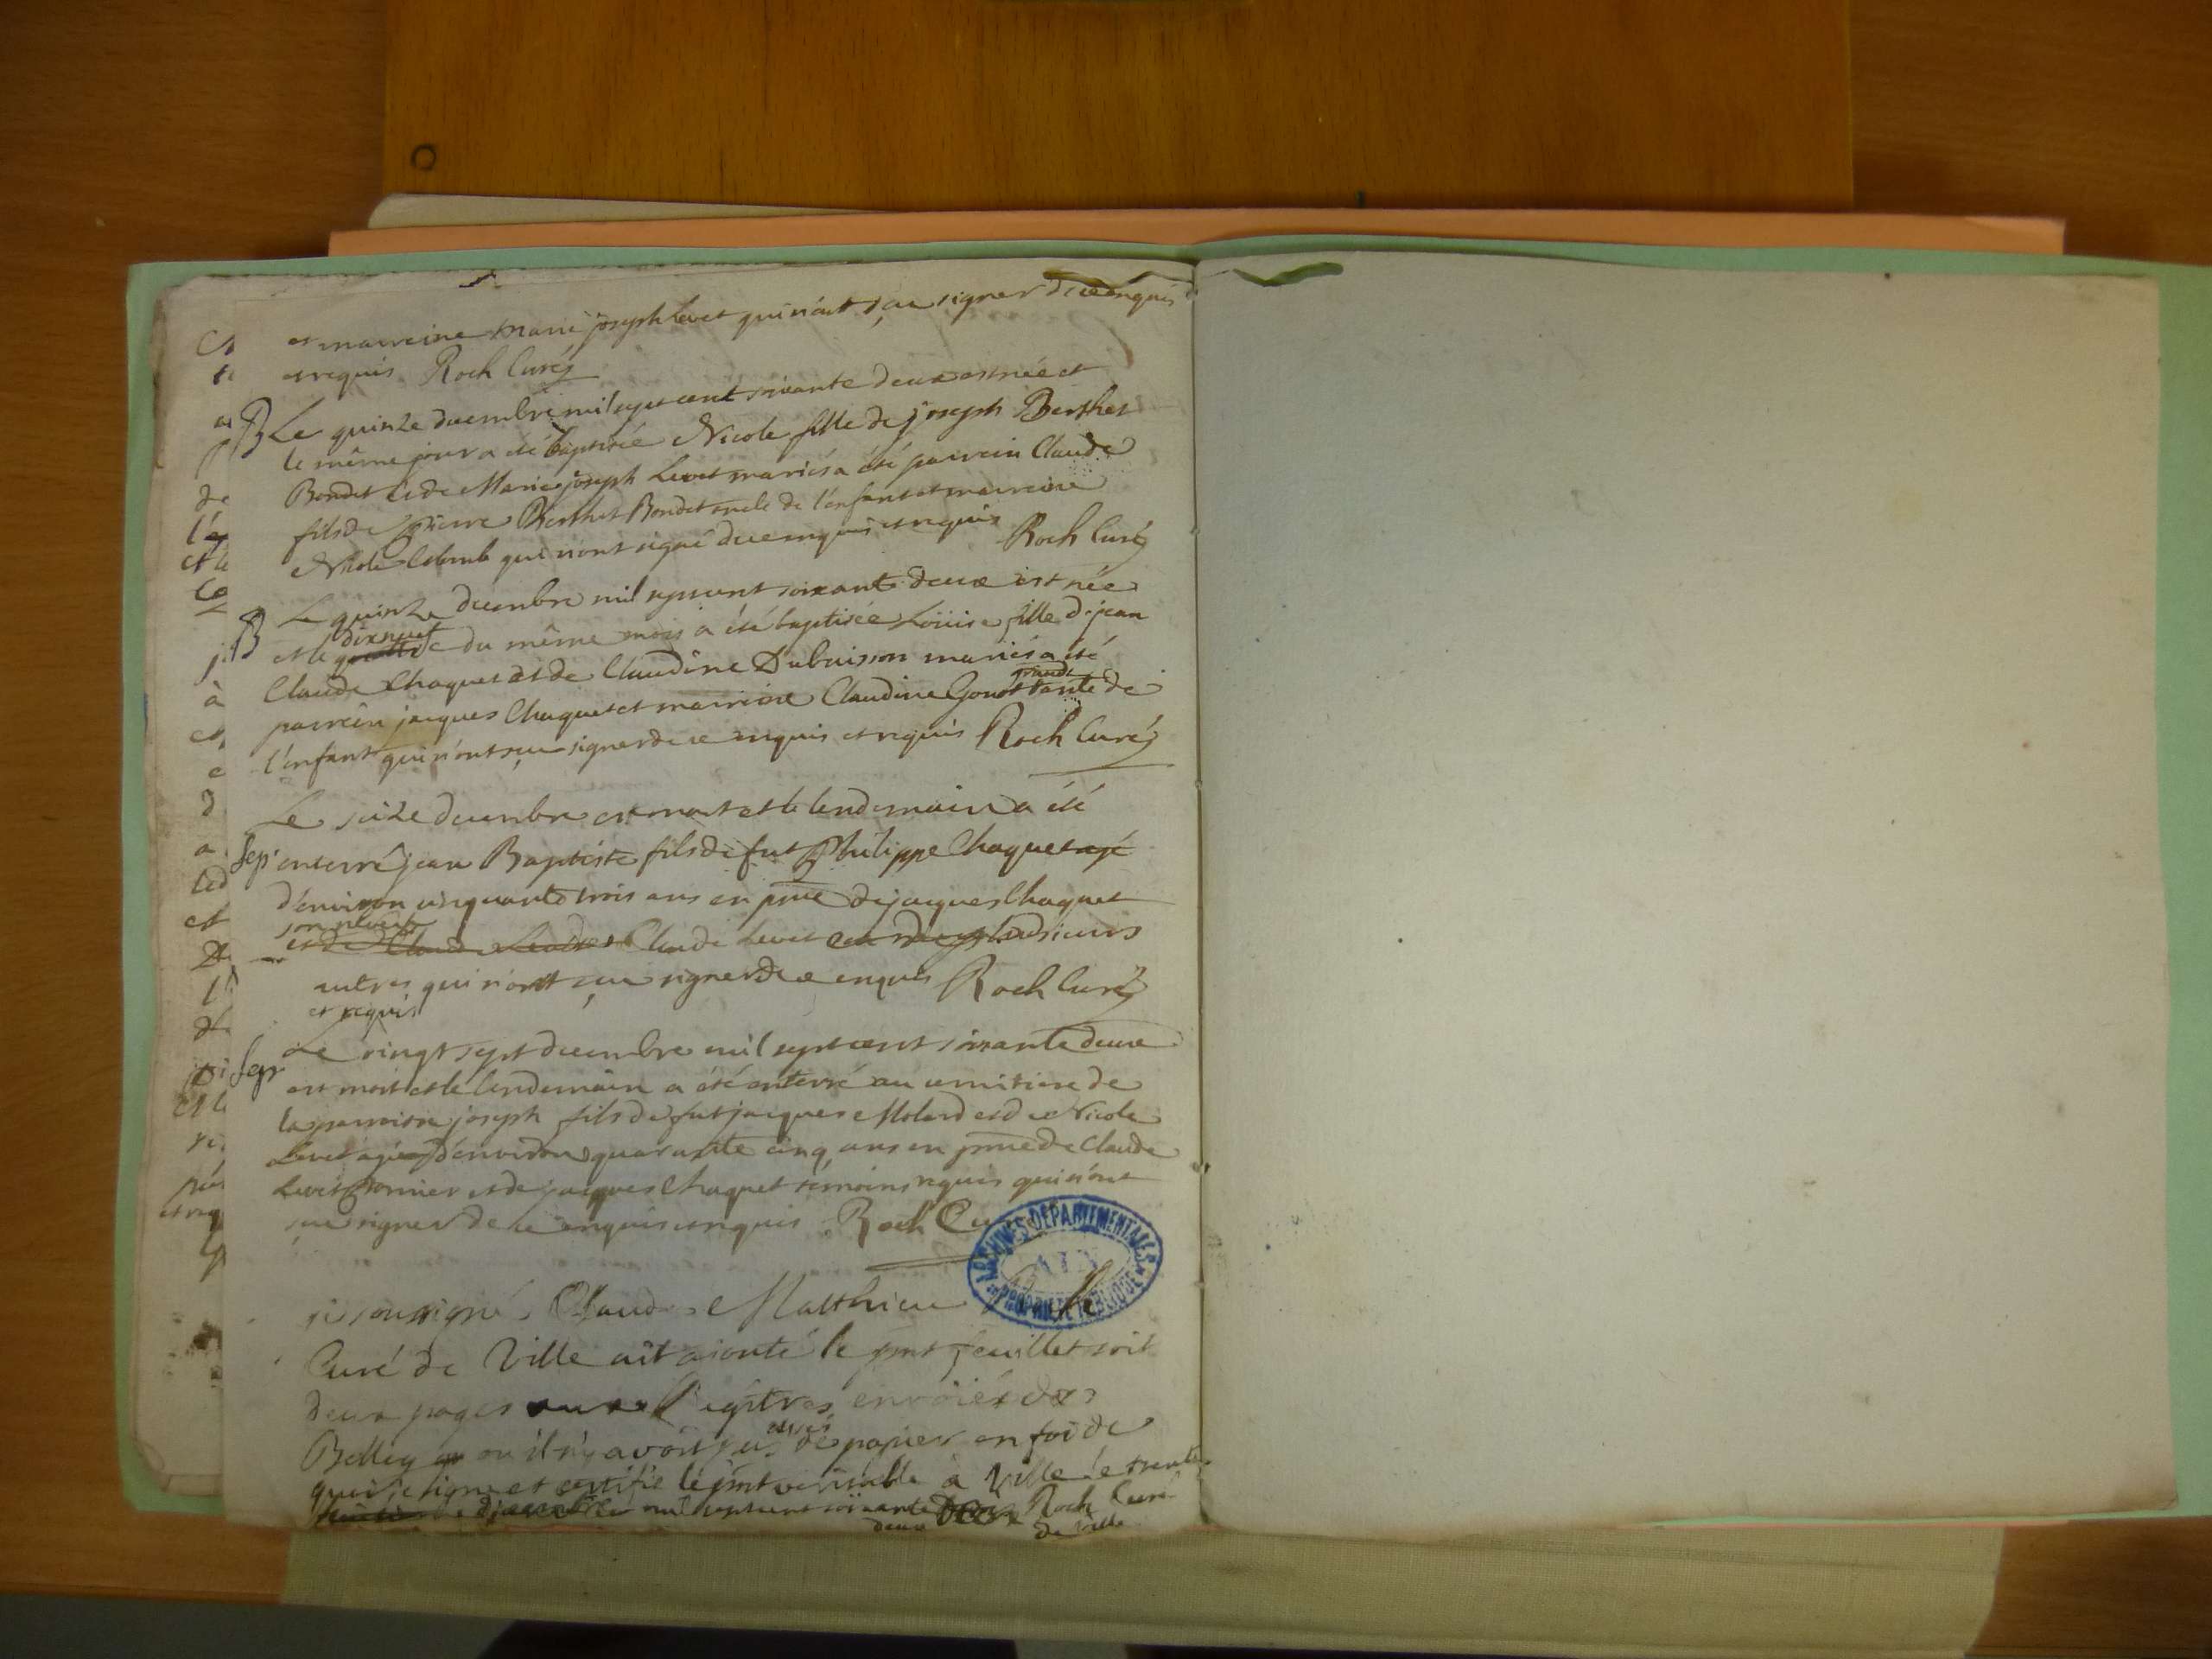 et marreine marie joseph Levet qui n'ont sçu signer de ce enquis
et requis Roch Curé
B Le quinze decembre mil sept cent soixante deux est née et
le même jour a été baptisée Nicole fille de joseph Berthet
Bondet et de Marie joseph Levet mariés a été parrein Claude
fils de Pierre Berthet Bondet oncle de l'enfant et marreine
Nicole Colomb qui n'ont signé de ce enquis et requis Roch Curé
B Le quinze decembre mil sept cent soixante deux est née
dixneuf
et le du même mois a été baptisée Loüise fille de jean
Claude Chaquet et de Claudine Dubuisson mariés a été
grande
parrein jacques Chaquet et marreine Claudine Gonet tante de
l'enfant qui n'ont sçu signer de ce enquis et requis Roch Curé
Le seize decembre est mort et le lendemain a été
Sep. enterré jean Baptiste fils de fut Philippe Chaquet agé
d'environ cinquante trois ans en pnce de jacques Chaquet
son neveu
et de Claude Claude Levet plusieurs
autres qui n'ont sçu signer de ce enquis Roch Curé
et requis
Sep. Le vingt sept decembre mil sept cent soixante deux
est mort et le lendemain a été enterré au cemitiere de
la parroisse joseph fils de fut jacques Molard et de Nicole
Levet agé d'environ quarante cinq ans en pnce de Claude
Levet et de jacques Chaquet temoins requis qui n'ont
sçu signer de ce enquis et requis Roch Curé
ARCHIVES DEPARTEMENTALES
AIN
PROPRIETE PUBLIQUE
je soussigné Claude Matthieu Roch
Curé de Ville ait ajouté le pnt feuillet soit
deux pages aux Regîtres envoiés de
assés
Belley ou il n'y avoit pas de papier en foi de
quoi je signe et certifie le pnt veritable à Ville le trente
de decembre mil sept cent soixante Roch Curé
deux de Ville